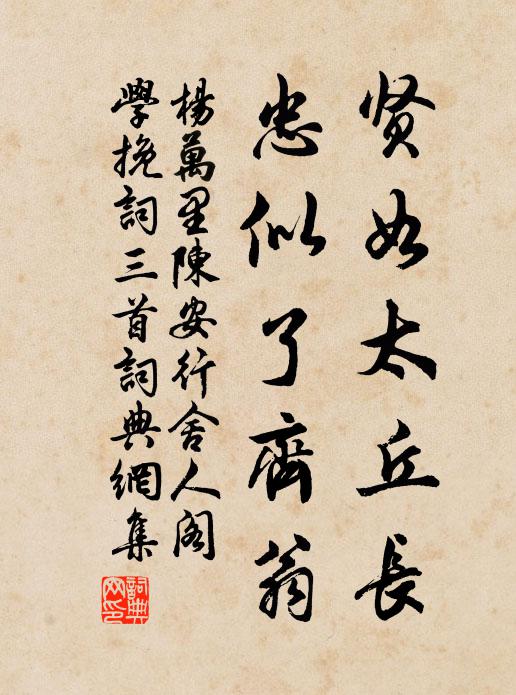 贤如太丘長
忠似了齊翁
楊萬里陳安行舍人阁
學挽詞三首詞典網集
詞典网印